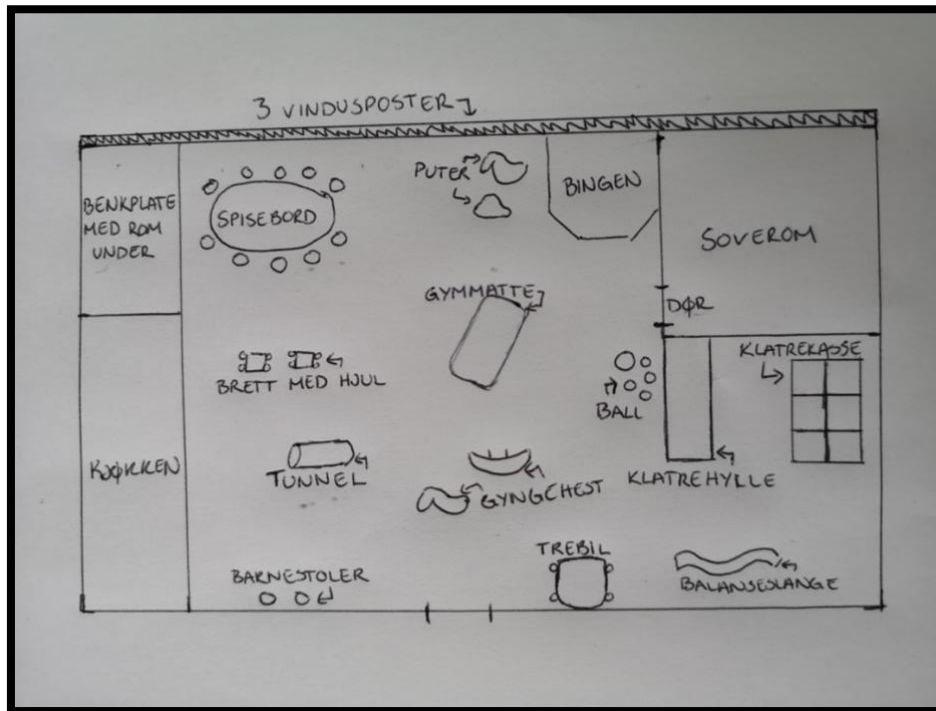 3 VINDUSPOSTER
BENKPLATE
MED ROM
UNDER
SPISEBORD
PUTER
BINGEN
SOVEROM
GYMMATTE
DØR
KLATREKASSE
BRETT MED HJUL
BALL
KJØKKEN
TUNNEL
GYNGEHEST
KLATREHYLLE
BARNESTOLER
TREBIL
BALANSESLANGE